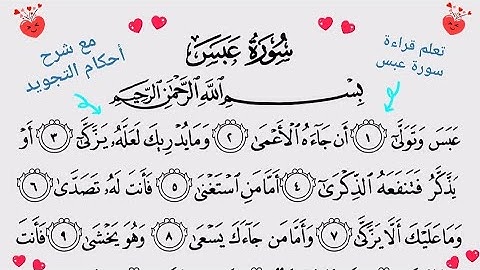 تعلم قراءة
سورة عبس
مع شرح
أحكام التجويد
سُورَةُ عَبَسَ
بِسْمِ اللَّهِ الرَّحْمَٰنِ الرَّحِيمِ
عَبَسَ وَتَوَلَّىٰٓ ١ أَن جَآءَهُ الْأَعْمَىٰ ٢ وَمَا يُدْرِيكَ لَعَلَّهُۥ يَزَّكَّىٰٓ ٣ أَوْ
يَذَّكَّرُ فَتَنفَعَهُ الذِّكْرَىٰٓ ٤ أَمَّا مَنِ اسْتَغْنَىٰ ٥ فَأَنتَ لَهُۥ تَصَدَّىٰ ٦
وَمَا عَلَيْكَ أَلَّا يَزَّكَّىٰ ٧ وَأَمَّا مَن جَآءَكَ يَسْعَىٰ ٨ وَهُوَ يَخْشَىٰ ٩ فَأَنتَ